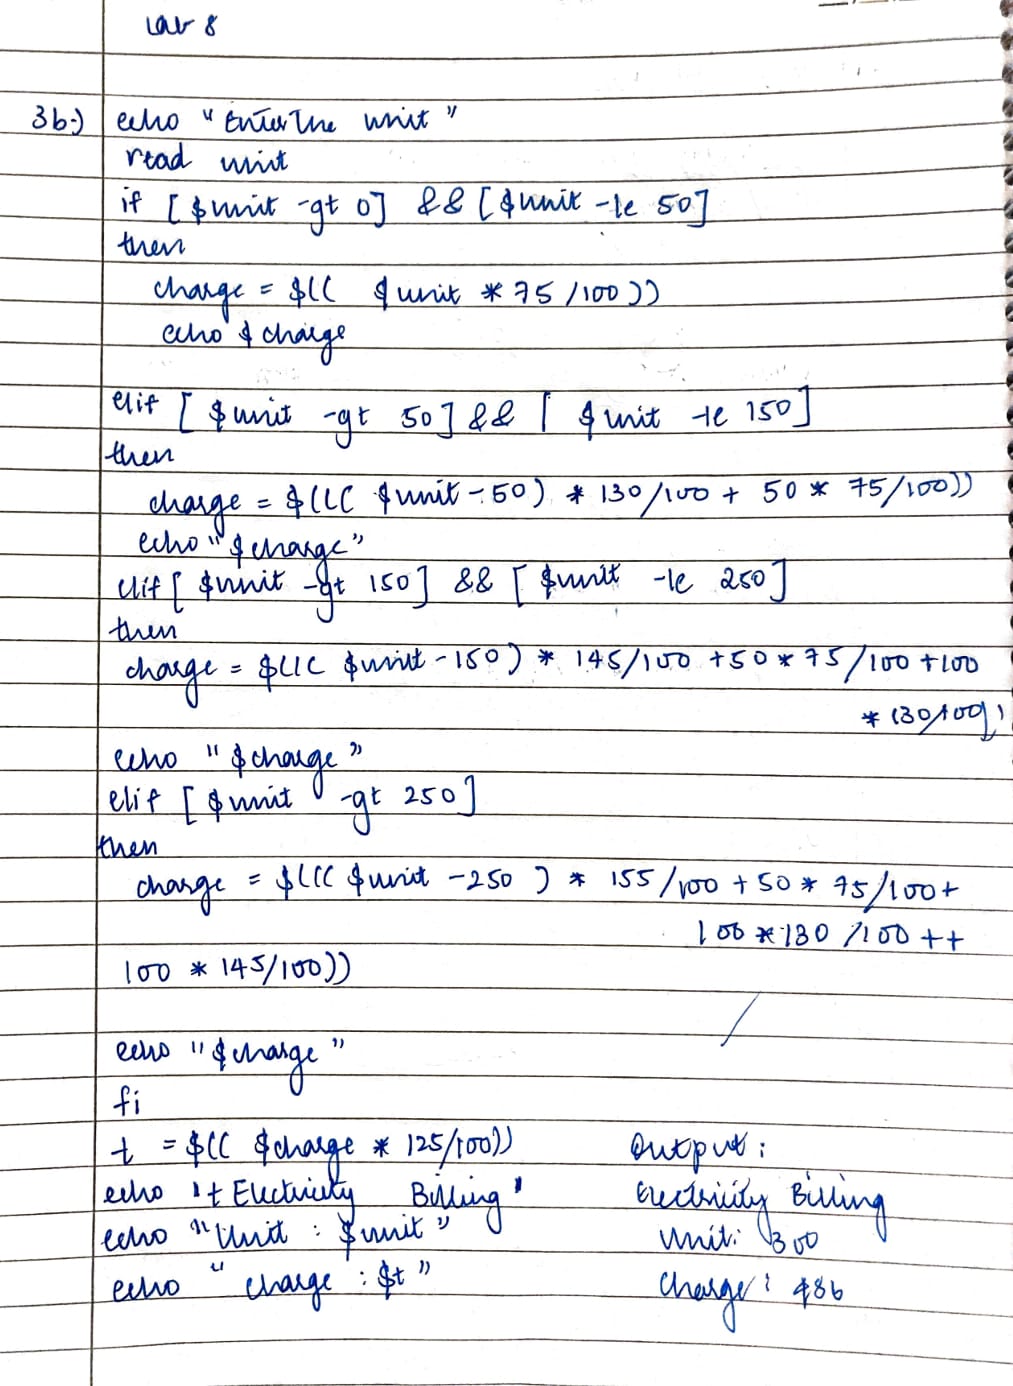 Lab 8
3b.) echo "Enter the unit"
read unit
if [ $unit -gt 0] && [ $unit -le 50]
then
charge = $(( $unit * 75 /100 ))
echo $ charge
elif [ $unit -gt 50] && [ $unit -le 150]
then
charge = $((( $unit - 50) * 130/100 + 50 * 75/100))
echo "$charge"
elif [ $unit -gt 150] && [ $unit -le 250]
then
charge = $((( $unit - 150) * 145/100 +50 * 75/100 +100
* 130/100))
echo "$charge"
elif [ $unit -gt 250]
then
charge = $((( $unit -250 ) * 155/100 + 50 * 75/100+
100 * 130 /100 ++
100 * 145/100))
echo "$charge"
fi
t = $(( $charge * 125/100))
echo 't Electricity Billing'
echo "Unit : $unit"
echo " charge : $t "
Output :
Electricity Billing
Unit: 300
Charge: 486